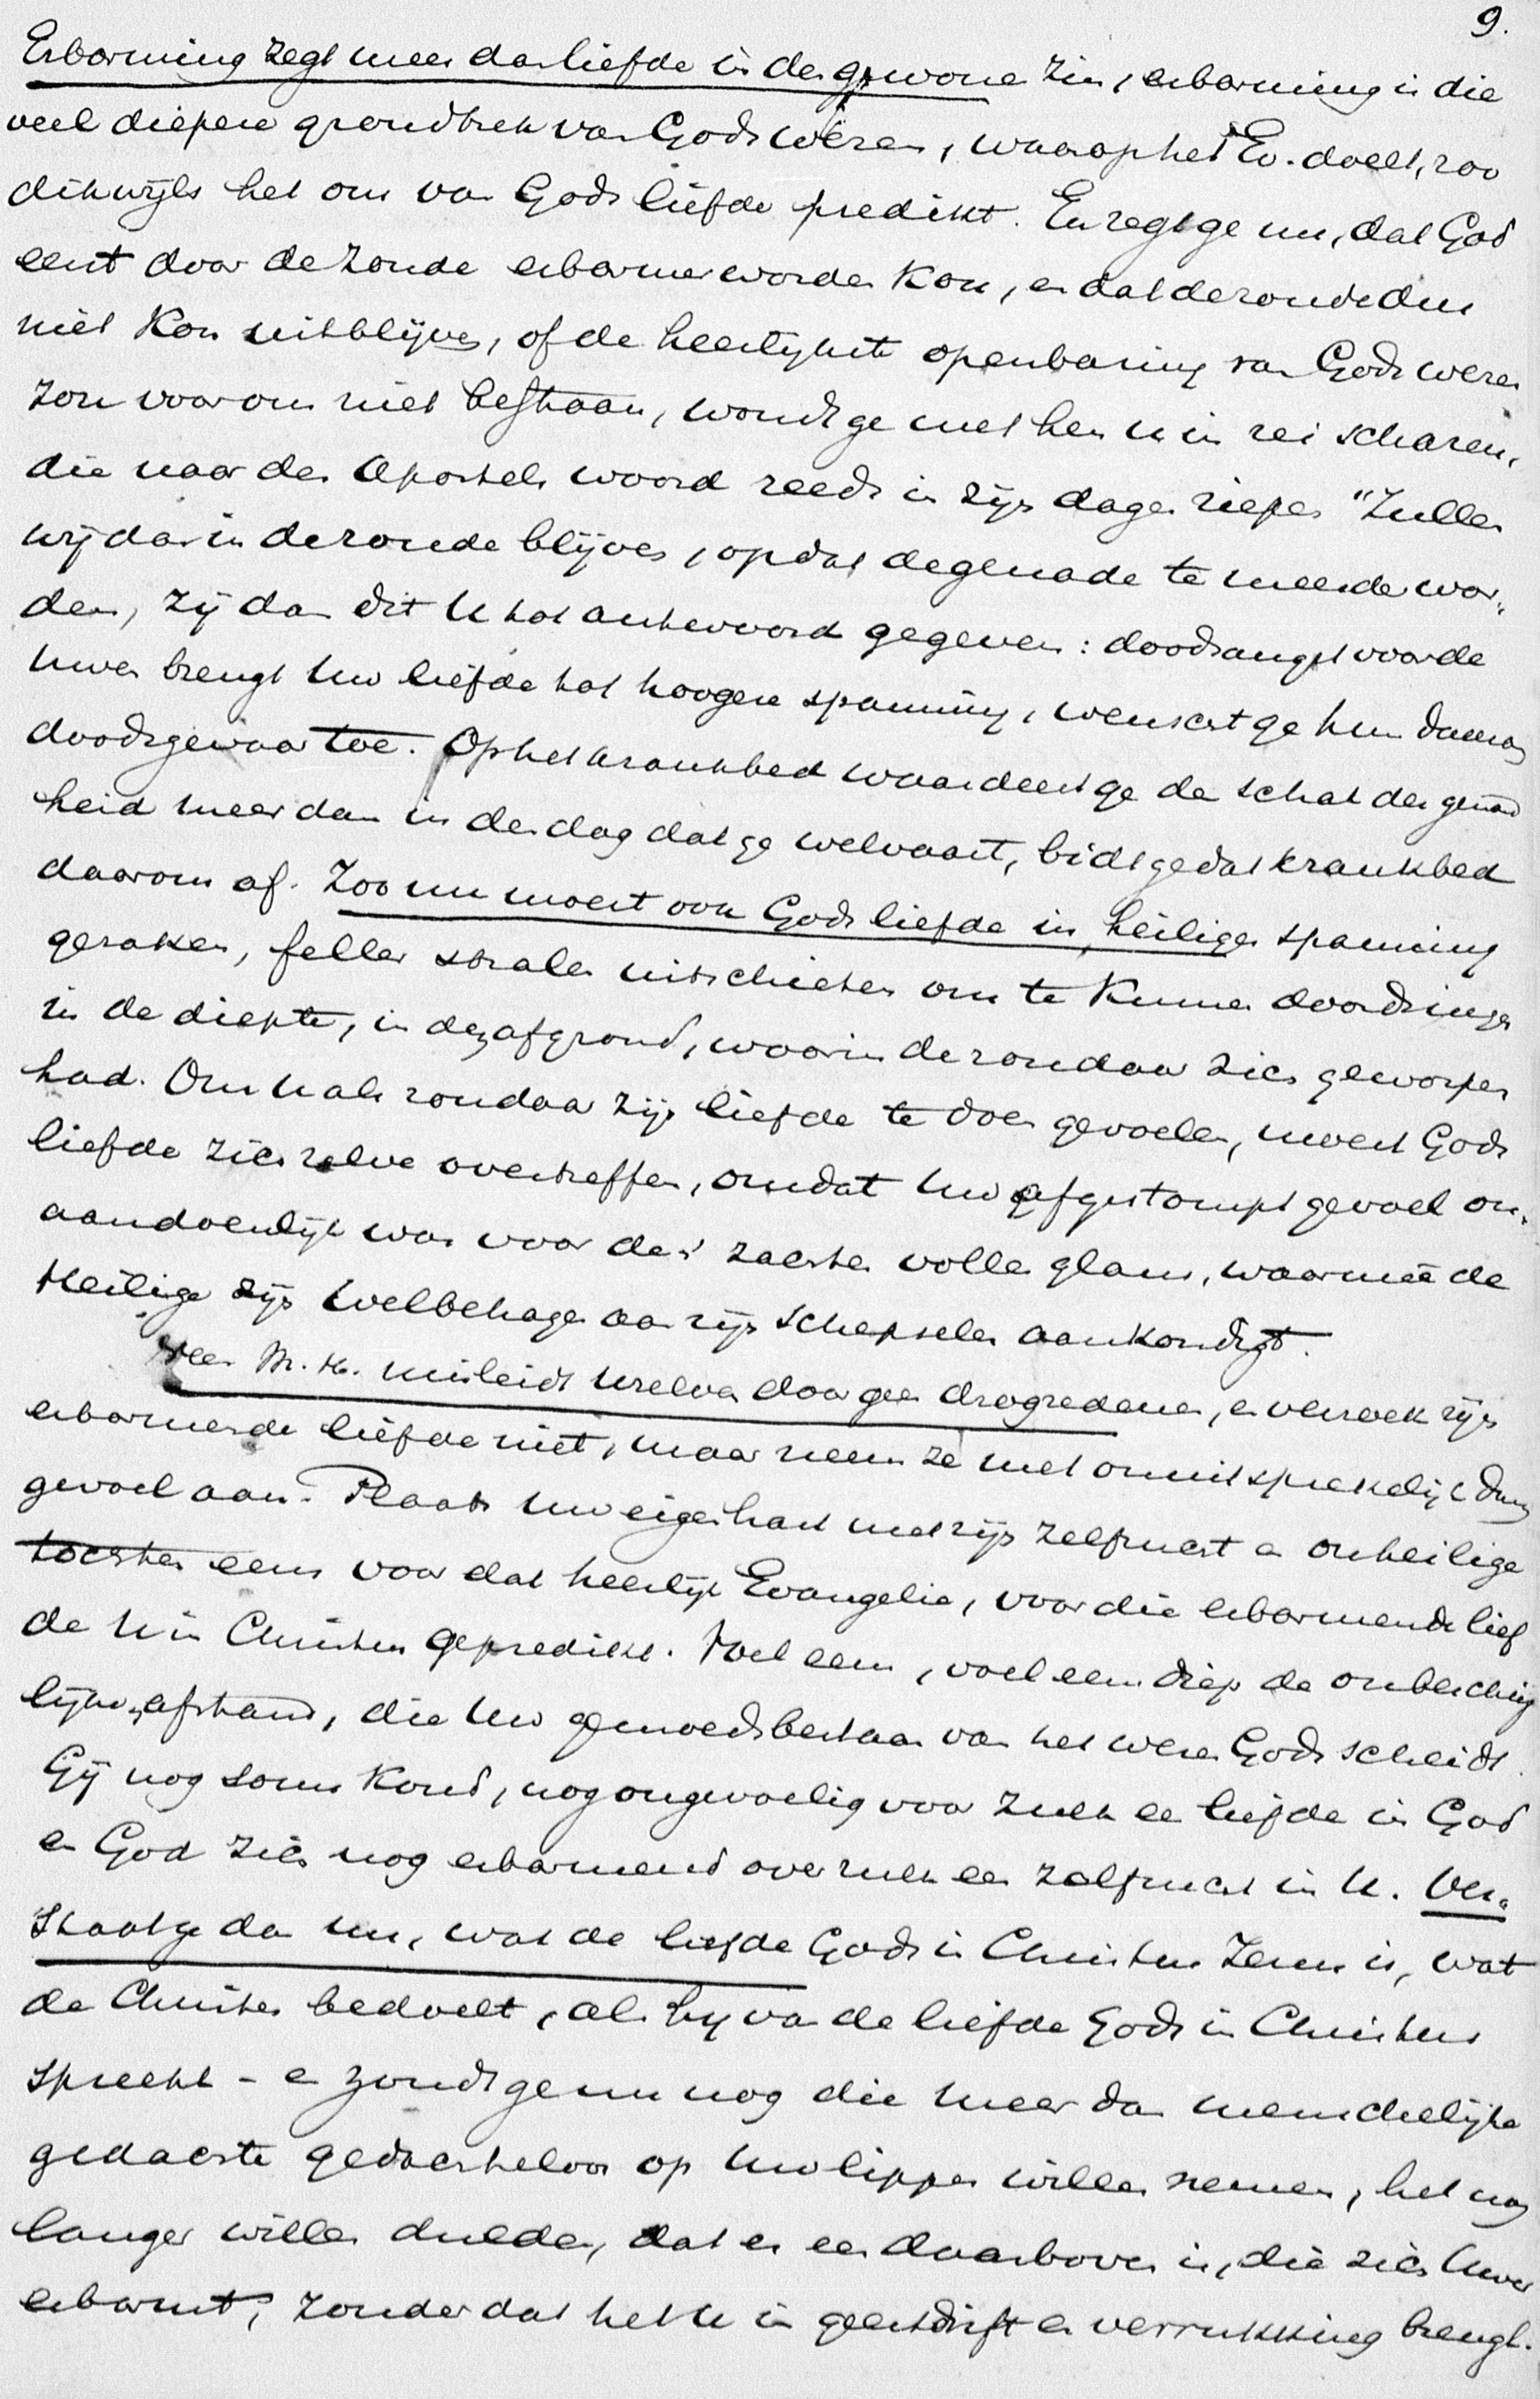 9.
Erbarming zegt meer dan liefde in den gewone zin, erbarming is die
veel diepere grondtrek van Gods wezen, waarop het Ev. doelt, zoo
dikwijls het ons van Gods liefde predikt. En zegt ge nu, dat God
eerst door de zonde erbarmer worden kon, en dat de zonde dus
niet kon uitblijven, of de heerlijkste openbaring van Gods wezen
zou voor ons niet bestaan, wordt ge met hen u in rei scharen,
die naar des Apostels woord reeds in zijn dagen riepen "Zullen
wij dan in de zonde blijven, opdat de genade te meerder wor„
den, zij dan dit U tot antwoord gegeven: doodsangst voor de
uwen brengt Uw liefde tot hoogere spanning, wenscht ge hun daarom
doodsgevaar toe. Op het krankbed waardeert ge de schat der gezond
heid meer dan in den dag dat ge welvaart, bidt ge dat krankbed
daarom af. Zoo nu moest ook Gods liefde in heilige spanning
geraken, feller stralen uitschieten om te kunnen doordringen
in de diepte, in den afgrond, waarin de zondaar zich geworpen
had. Om U als zondaar zijn liefde te doen gevoelen, moest Gods
liefde zich zelve overtreffen, omdat Uw afgestompt gevoel on„
aandoenlijk was voor den zachten vollen glans, waarmeê de
Heilige zijn Welbehagen aan zijn schepselen aankondigt.
Neen M. H. misleidt Uzelven door geen drogredenen, en verzoek zijn
erbarmende liefde niet, maar neem ze met onuitsprekelijk dank
gevoel aan. Plaats Uw eigen hart met zijn zelfzucht en onheilige
tochten eens voor dat heerlijk Evangelie, voor die erbarmende lief
de U in Christus gepredikt. Voel eens, voel eens diep de onberekening
lijken afstand, die Uw gemoedsbestaan van het wezen Gods scheidt.
Gij nog soms koud, nog ongevoelig voor zulk een liefde in God
en God zich nog erbarmend over zulk een zelfzucht in U. Ver„
staat ge dan nu, wat de liefde Gods in Christus Jezus is, wat
de Christen bedoelt, als hij van de liefde Gods in Christus
spreekt - en zoudt ge nu nog die meer dan menschelijke
gedachte gedachteloos op Uw lippen willen nemen, het nog
langer willen dulden, dat er een daarboven is, die zich Uwer
erbarmt, zonder dat het U in geestdrift en verrukking brengt.